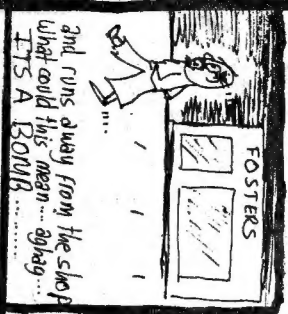 FOSTERS
and runs away from the shop
what could this mean.... aghagg....
ITS A BOMB........